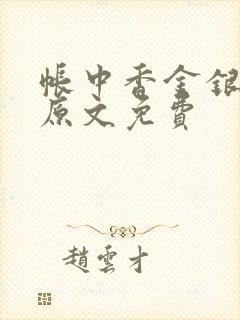 帳中香金銀
原文免費
趙雲才